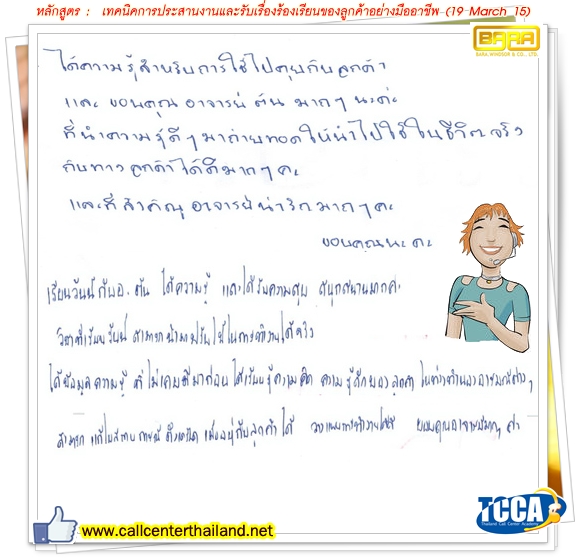 หลักสูตร : เทคนิคการประสานงานและรับเรื่องร้องเรียนของลูกค้าอย่างมืออาชีพ (19 March 15)
BARA
BARA WINDSOR & CO., LTD.
ได้ความรู้สำหรับการใช้ไปคุยกับลูกค้า
และ ขอบคุณ อาจารย์ ต้น มากๆ นะค่ะ
ที่นำความรู้ดีๆ มาถ่ายทอดให้นำไปใช้ในชีวิตจริง
กับทางลูกค้าได้ดีมากๆ คะ
และที่สำคัญ อาจารย์น่ารักมากๆ คะ
ขอบคุณนะ คะ
เรียนวันนี้กับอ. ต้น ได้ความรู้ และได้รับความสุข สนุกสนานมากค่ะ
วิชาที่เรียนวันนี้ สามารถนำมาปรับใช้ในการทำงานได้จริง
ได้ข้อมูลความรู้ ที่ไม่เคยมีมาก่อน ได้เรียนรู้ความคิด ความรู้สึกของลูกค้า
สามารถ แก้ไขสถานการณ์ ตึงเครียด เมื่ออยู่กับลูกค้าได้ ขอบคุณอาจารย์มากๆ ค่ะ
www.callcenterthailand.net
TCCA
Thailand Call Center Academy